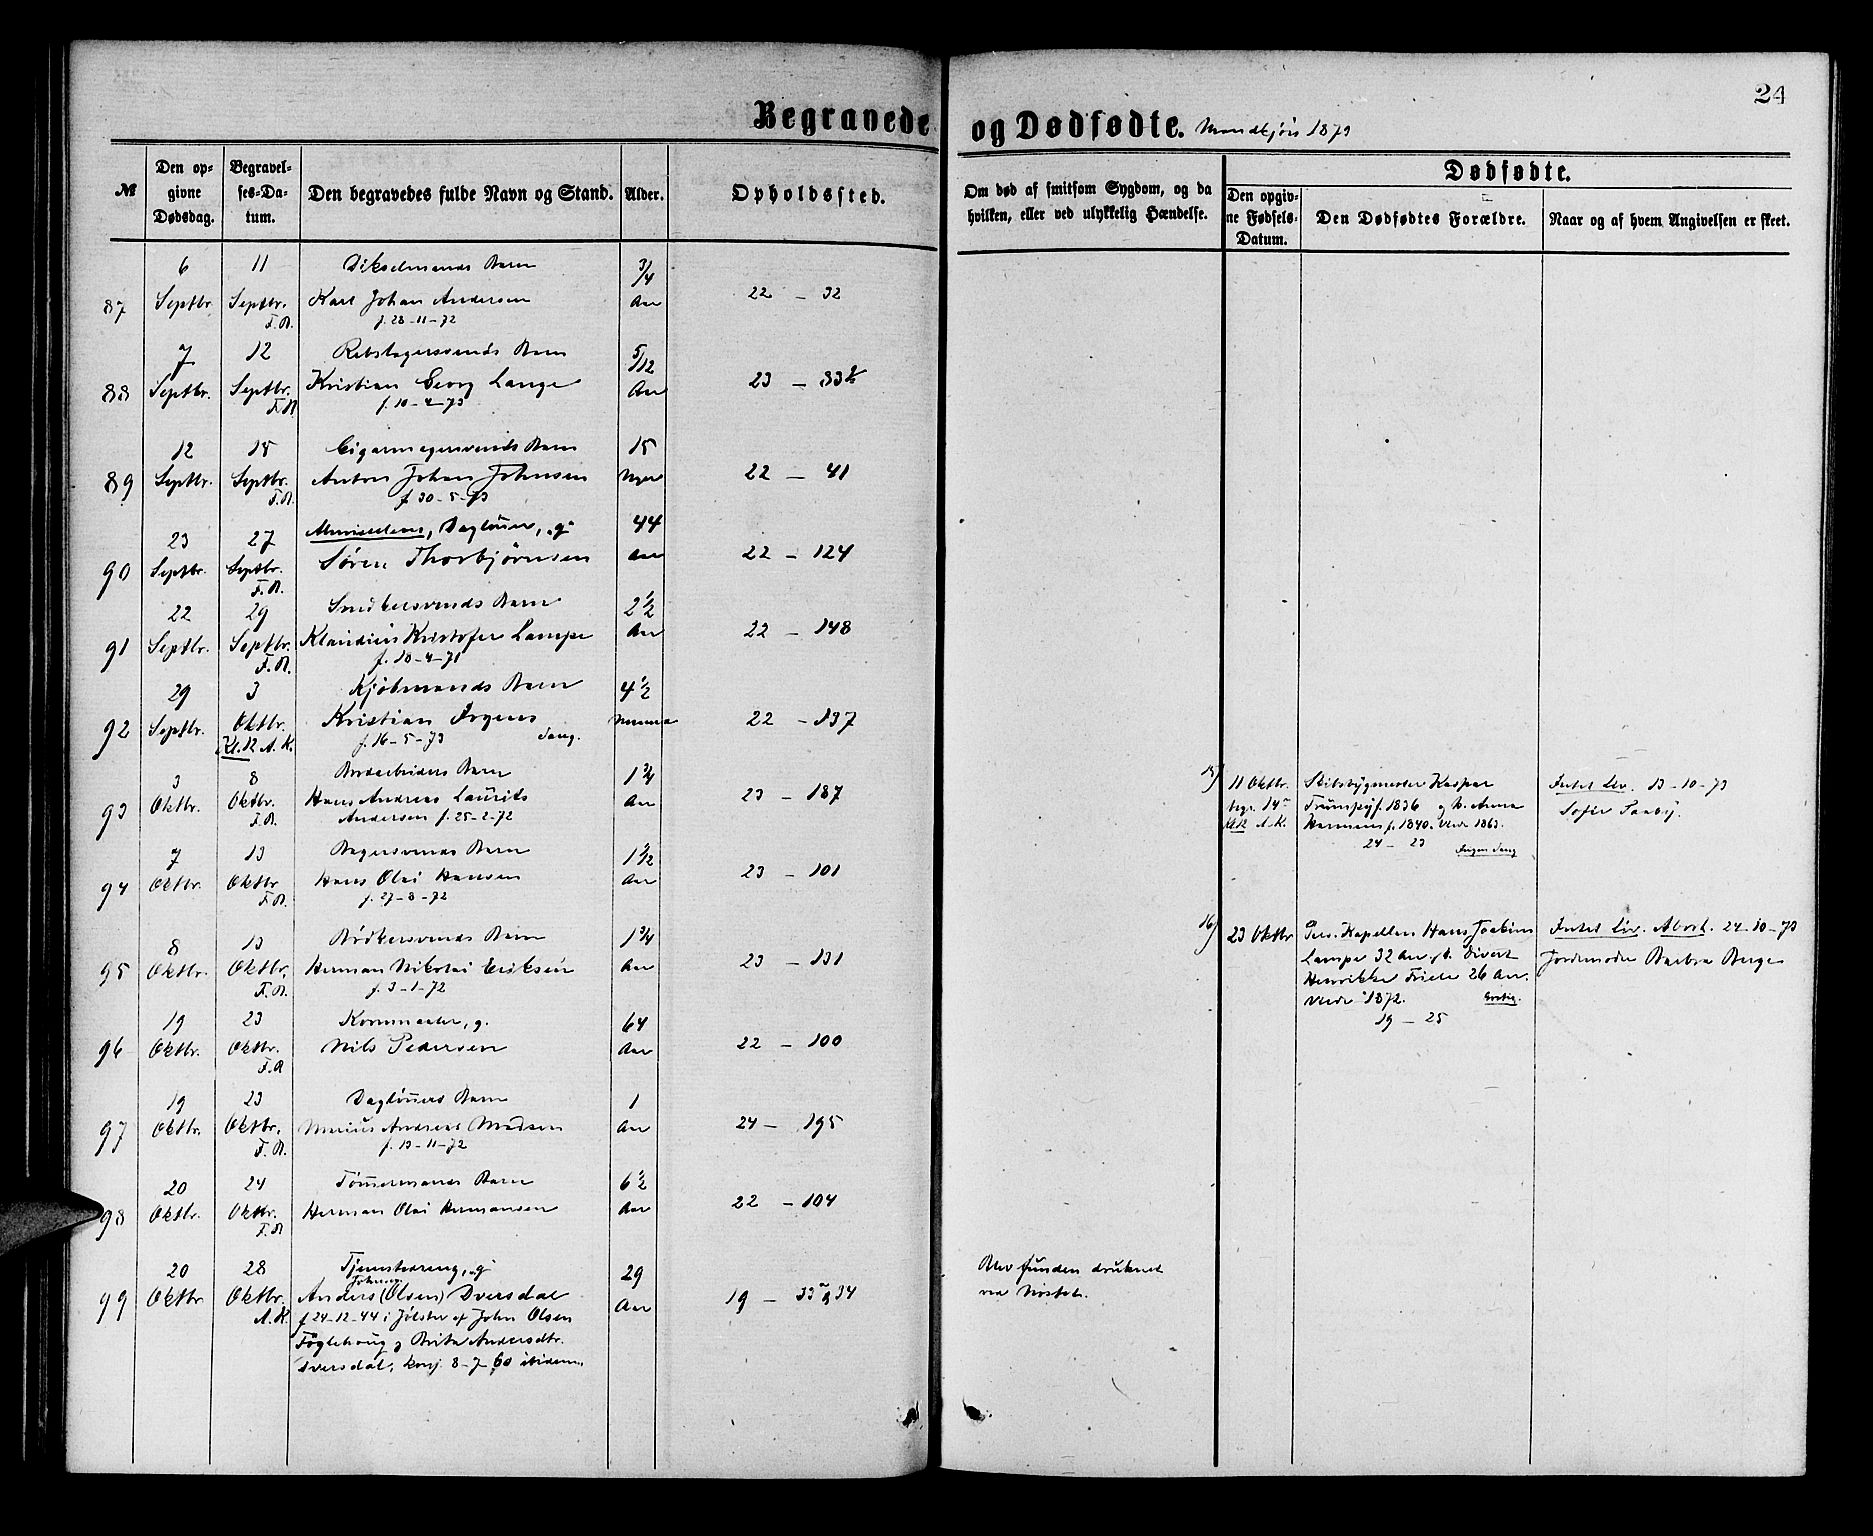 24
Begravede og Dødfødte. Mandkjøn 1873
№
Den opgivne Dødsdag.
Begravelses-Datum.
Den begravedes fulde Navn og Stand.
Alder.
Opholdssted.
Om død af smitsom Sygdom, og da hvilken, eller ved ulykkelig Hændelse.
Dødfødte.
Den opgivne Fødsels-Datum.
Den Dødfødtes Forældre.
Naar og af hvem Angivelsen er skeet.
6 11 Barn 3/4
87 Septbr. Septbr. Karl Johan Andersen Aar 22 – 32
F.R. f. 28-11-72
7 12 Rebslagersvends Barn 5/12
88 Septbr. Septbr. Kristian Georg Lange Aar 23 – 83½
F.R. f. 10-4-73
12 15 Cigarmagersvends Barn 15
89 Septbr. Septbr. Anton Johan Johnsen Uger 22 – 41
F.R. f. 30-5-73
23 27 Almisselem, Daglönner, g. 44
90 Septbr. Septbr. Søren Thorbjørnsen Aar 22 – 124
F.R.
22 29 Snedkersvends Barn 2½
91 Septbr. Septbr. Klaudius Kristofer Lampe Aar 22 – 148
F.R. f. 10-4-71
29 3 Kjöbmands Barn 4½
92 Septbr. Oktbr. Kristian Irgens 22 – 137
Kl.12 A.K. f. 16-5-73
3 8 Barn 1¾
93 Oktbr. Oktbr. Hans Andreas Laurits Aar 23 – 187
F.R. Andersen f. 25-2-72
7 13 Bagersvends Barn 1½
94 Oktbr. Oktbr. Hans Olai Hansen Aar 23 – 101
F.R. f. 27-8-72
8 13 Bödkersvends Barn 1¾
95 Oktbr. Oktbr. Herman Nikolai Eriksen Aar 23 – 131
F.R. f. 3-1-72
19 23 Kornmaaler, g. 64
96 Oktbr. Oktbr. Nils Pedersen Aar 22 – 100
F.R
19 23 Daglönners Barn 1
97 Oktbr. Oktbr. Marius Andreas Madsen Aar 24 – 195
F.R. f. 13-11-72
20 24 Tömmermands Barn 6½
98 Oktbr. Oktbr. Herman Olai Hermansen Aar 22 – 104
F.R
20 28 Tjenestedreng, g. 29
Johnsen
99 Oktbr Oktbr. Anders (Olsen) Dversdal Aar 19 – 33 34
A.K. f. 24-12-44 i Jölster af John Olsen
Föglehoug og Brita Andersdtr.
Dversdal, konf. 8-7-60 ibidem.
Blev funden druknet
ved Nöstet.
15) 11 Oktbr. Skibsbygmester Kaspar
begr. 14de Trumpy f. 1836 og h. Anna
Kl12 A.K. Hermans f. 1840. Viede 1863.
24 – 23
Intet Liv. 13-10-73
Sofie Saaby.
16) 23 Oktbr Pers. Kapellan Hans Joakim
Lampe 32 Aar, h. Divert
Henrikke Friele 26 Aar.
Viede 1872.
19 – 25
Intet Liv. Abort. 24-10-73
Jordemoder Barbra Berge